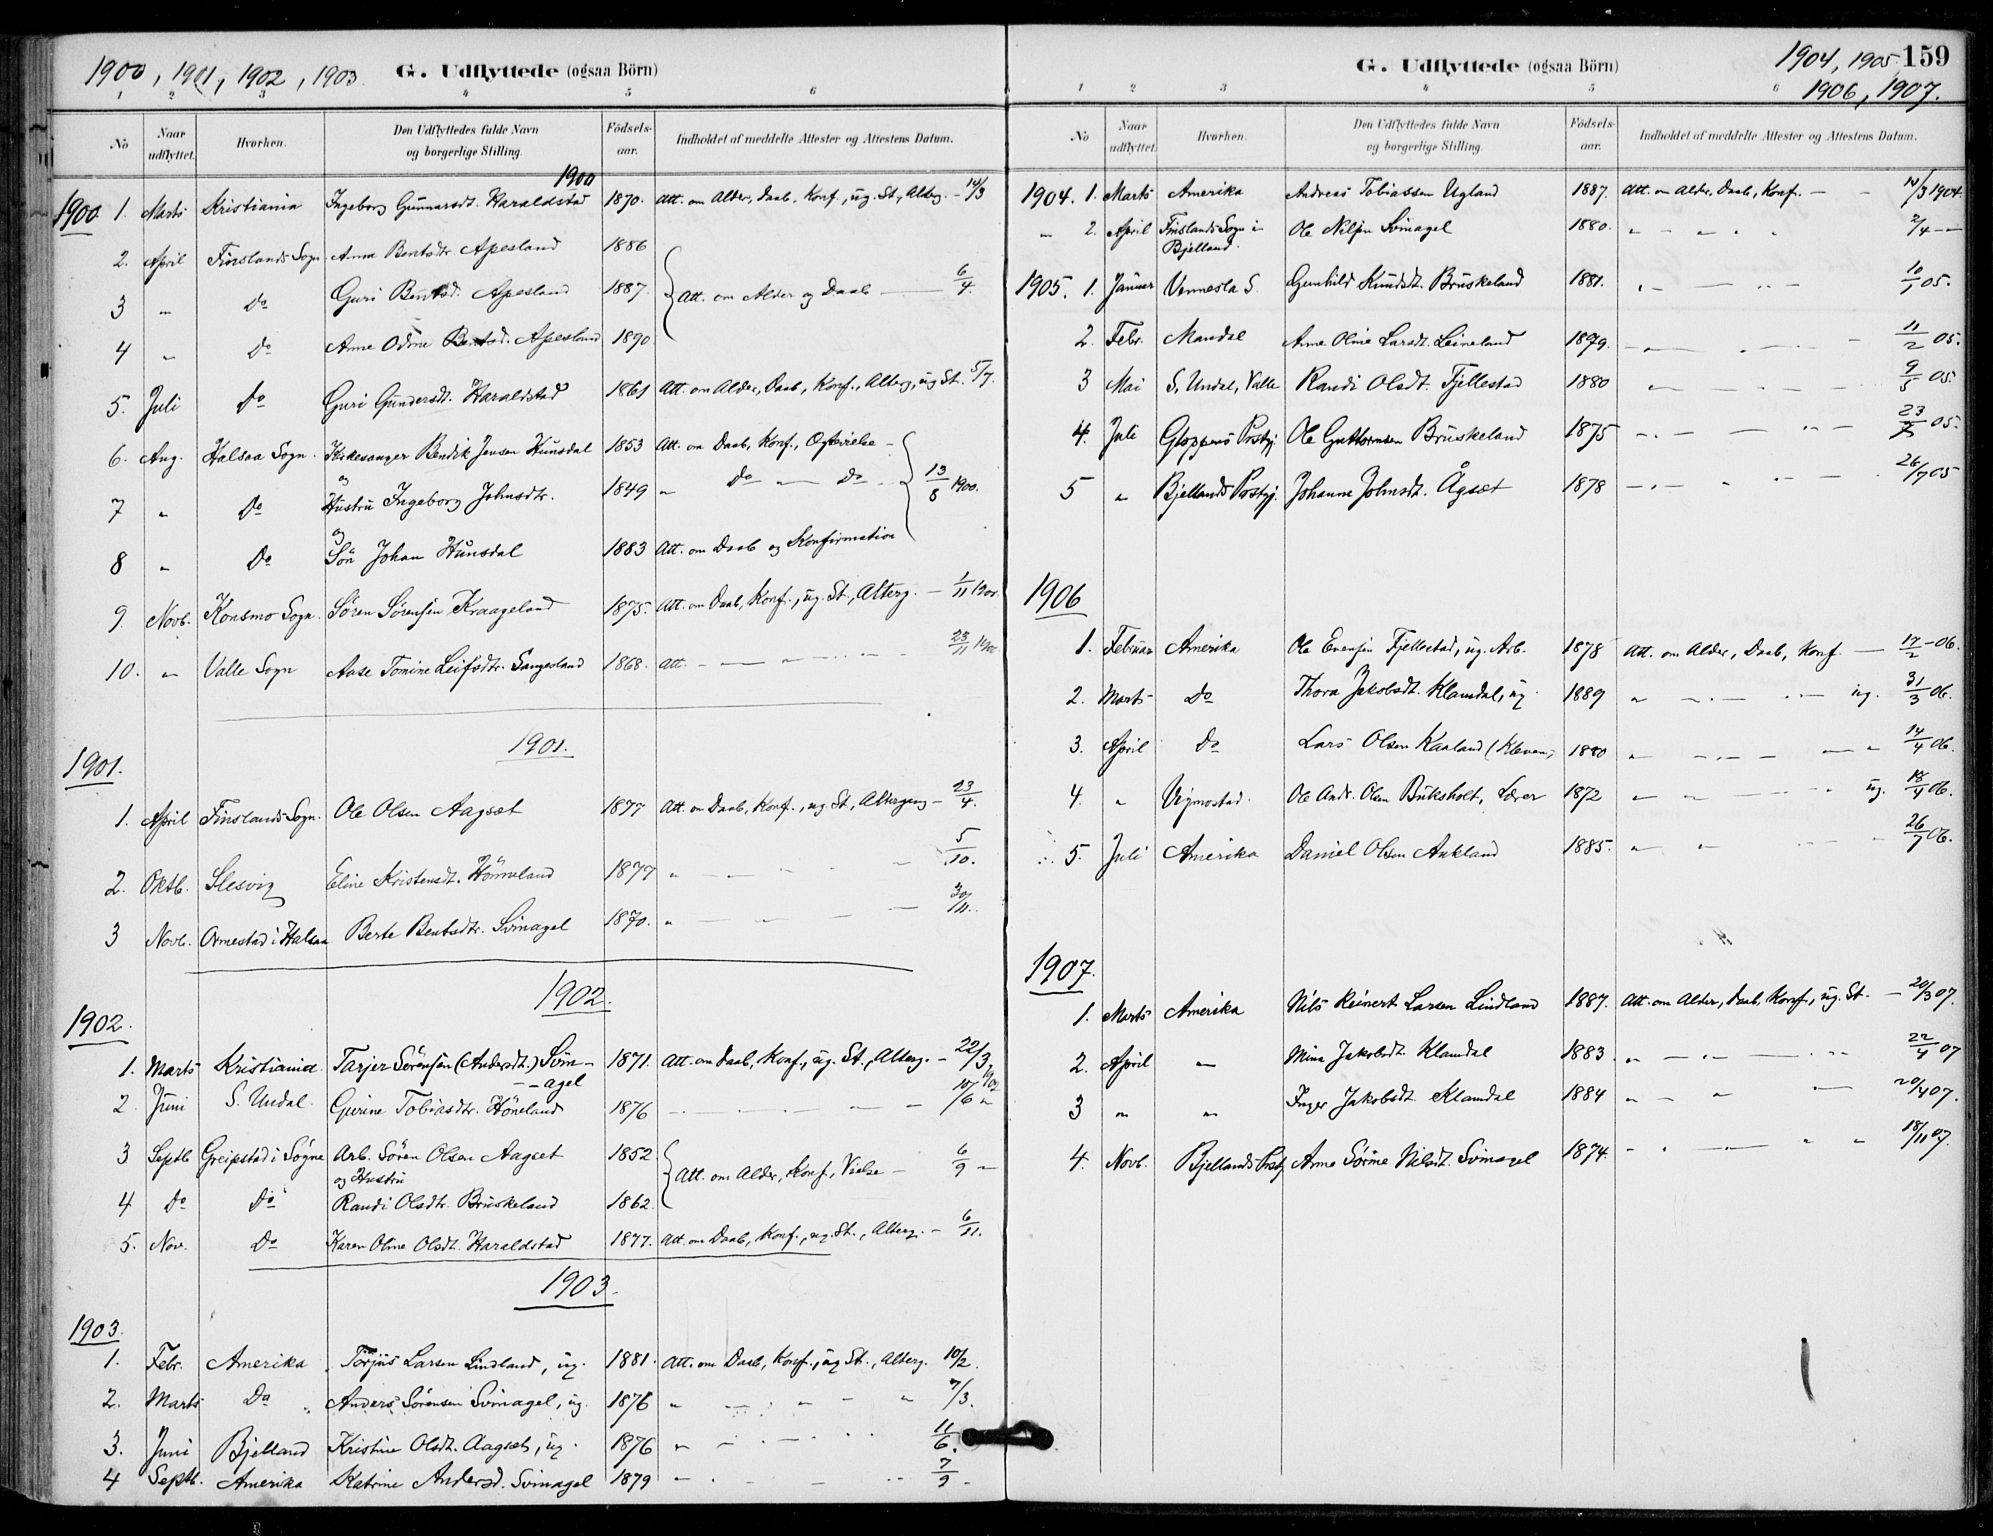 1900, 1901, 1902, 1903. G. Udflyttede (ogsaa Börn)
1 2 3 4 5 6
No Naar udflyttet. Hvorhen. Den Udflyttedes fulde Navn og borgerlige Stilling. Födsels-aar. Indholdet af meddelte Attester og Attestens Datum.
1900
1900 1. Marts Kristiania Ingeborg Gunnarsdt. Haraldstad 1870. Att. om Alder, Daab, Konf., ug. St., Alterg. – 14/3
2. April Finslands Sogn Anna Bentsdtr Apesland 1886
3 " Do Guri Bentsd. Apesland 1887. Att. om Alder og Daab — 6/4.
4 " Do Anne Odine Bentsd. Apesland 1890
5. Juli Do Guri Gundersdt. Haraldstad 1861 Att. om Alder, Daab, Konf., Alterg., ug St. 5/7.
6. Aug. Halsaa Sogn. Kirkesanger Bendik Jensen Hunsdal 1853 Att. om Daab, Konf., Egtevielse –
og
7 " Do Hustru Ingeborg Johnsdtr. 1849 " Do — Do 13/8 1900.
og
8 " Do Sön Johan Hunsdal 1883 Att. om Daab og Konfirmation
9. Novb. Konsmo Sogn. Sören Sörensen Kraageland 1875. Att. om Daab, Konf., ug. St., Alterg. – 1/11 1900.
10. " Valle Sogn Aase Tomine Leifsdtr. Sangesland 1868. Att. — " — 23/11 1900.
1901.
1901.
1. April Finslands Sogn. Ole Olsen Aagset 1877 Att. om Daab, Konf., ug. St., Altergang – 23/4.
2. Oktb. Slesvig Eline Kristensdt. Hönneland 1877 " — " 5/10.
3 Novb. Ormestad i Halsaa Berte Bentsdtr. Svinagel 1870. " — " — 30/11.
1902.
1902.
1. Marts Kristiania Tarjer Sörensen (Andersdt.) Svin- 1871. Att. om Daab, Konf., ug. St., Alterg. – 22/3 1902
– agel
2 Juni S. Undal. Gurine Tobiasdtr. Höneland 1876 — — 10/6 "
3 Septb Greipstad i Sögne Arb. Sören Olsen Aagset 1852
og Hustru Att. om Alder, Konf., Vielse – 6/9 –
4 Do Do Randi Olsdtr. Bruskeland 1862.
5. Nov. Do Karen Oline Olsdt. Haraldstad 1877. Att. om Daab, Konf., ug. St., Alterg. – 6/11.
1903.
1903.
1. Febr. Amerika Torjus Larsen Lindland, ug. 1881. Att. om Daab, Konf., ug St., Alterg. 10/2.
2. Marts Do Anders Sörensen Svinagel, ug. 1876 " — " – " 7/3.
3. Juni Bjelland Kristine Olsdt. Aagset, ug. 1876 " – 11/6.
4 Septb. Amerika Katrine Andersd. Svinagel 1879 " – 7/9 –
G. Udflyttede (ogsaa Börn) 1904, 1905, 159
1906, 1907.
1 2 3 4 5 6
No Naar udflyttet. Hvorhen. Den Udflyttedes fulde Navn og borgerlige Stilling. Födsels-aar. Indholdet af meddelte Attester og Attestens Datum.
1904. 1. Marts Amerika Andreas Tobiassen Ugland 1887. Att. om Alder, Daab, Konf. – – 10/3 1904.
" 2. April Finslands Sogn i Bjelland. Ole Nilsen Svinagel 1880. " – " 2/4 – –
1905. 1. Januar Vennesla S. Gunhild Knudsdt. Bruskeland 1881. " — 10/1 05.
2. Febr. Mandal Anne Oline Larsdt. Leineland 1879. – " — 11/2 05.
3 Mai S. Undal, Valle Randi Olsdt. Fjellestad 1880 " — 9/5 05.
4. Juli Gloppens Prstgj. Ole Guttormsen Bruskeland 1875 – " – 23/7 05.
5 " Bjellands Prstgj. Johanne Johnsdt. Ågset 1878 – " – 26/7 05
1906
1. Februar Amerika Ole Evensen Fjellestad, ug. Arb. 1878 Att. om Alder, Daab, Konf. — 17/2 – 06.
2. Marts Do Thora Jakobsdt. Klamdal, ug. 1889 " — ug. 31/3 06.
3. April Do Lars Olsen Kaaland (Kleven, 1880 " — " 14/4 06.
4. " Vigmostad. Ole Andr. Olsen Buksholt, Lærer 1872 " — ug. 18/4 06.
5. Juli Amerika Daniel Olsen Aukland 1885. " — 26/7 06.
1907.
1. Marts Amerika Nils Reinert Larsen Lindland 1887. Att. om Alder, Daab, Konf., ug. St. – 20/3 07.
2. April " Mina Jakobsdt. Klamdal 1883. " — " 22/4 07
3 " " Inger Jakobsdt. Klamdal 1884 " " — 20/4 07.
4. Novb. Bjellands Prstgj Anne Sörine Nilsdt. Svinagel 1874. – " — " " 18/11 07.